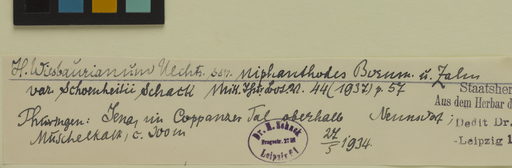 H. Wiesbaurianum Uechtr. ssp. niphanthodes Bornm. u. Zahn
var. Schoenheitii Schack Mitt. Thür. Bot. V. 44 (1937) p. 57
Thüringen: Jena, im Coppanzer Tal oberhalb Nennsdorf,
Muschelkalk, c. 300 m 27/5 1934.
Dr. H. Schack
Leipzig
Staatsher
Aus dem Herbar d
Dedit Dr.
-Leipzig